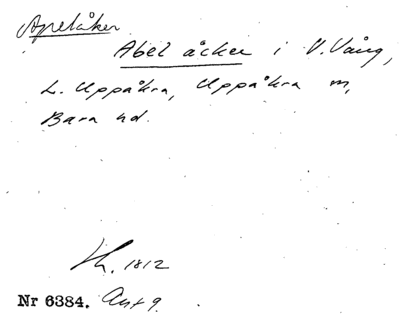 Apelåker
Abel åcker i V. Vång,
L. Uppåkra, Uppåkra sn,
Bara hd.
Sk. 1812
Nr 6384. Ant 9.